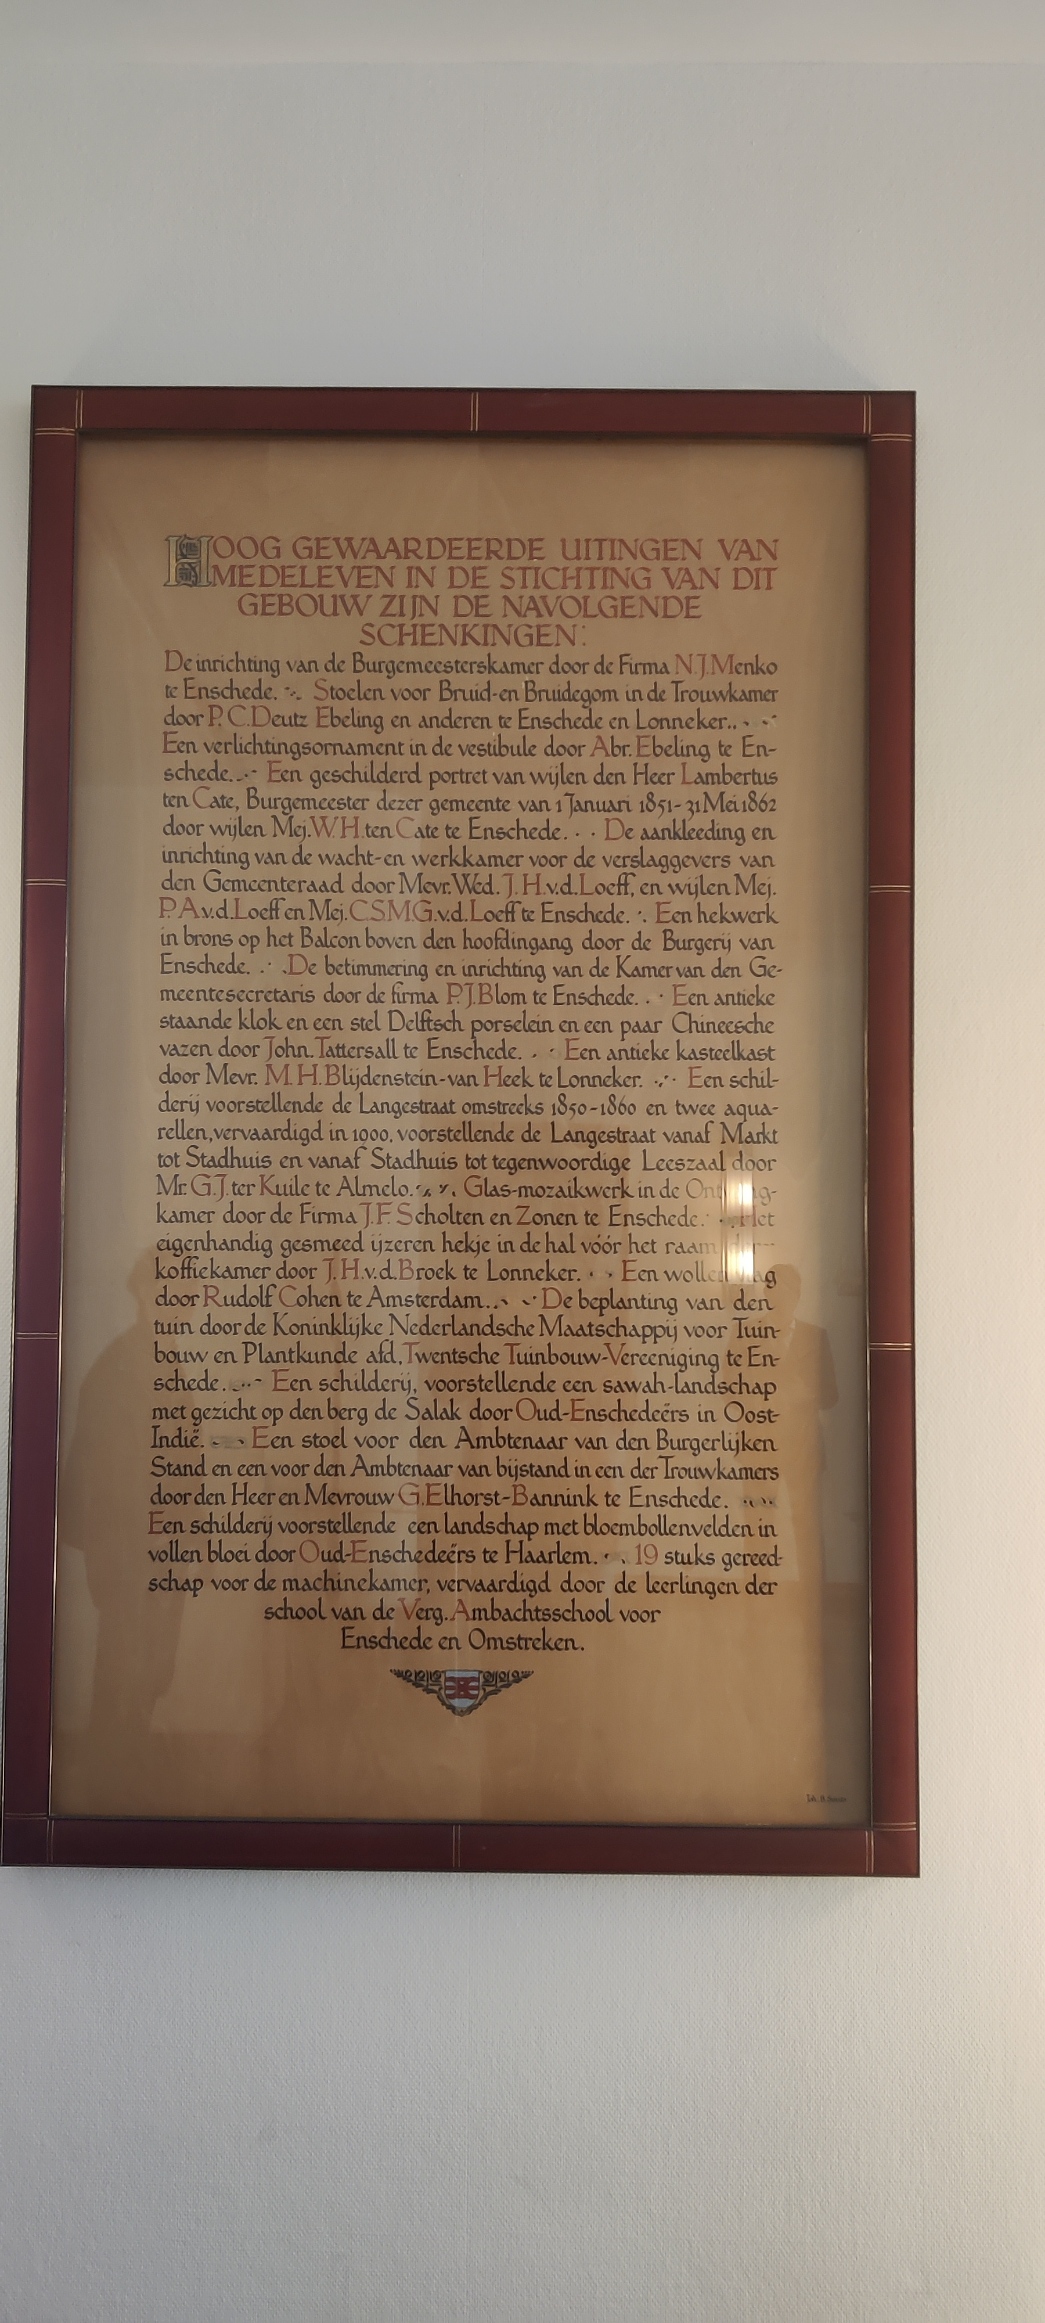 HOOG GEWAARDEERDE UITINGEN VAN
MEDELEVEN IN DE STICHTING VAN DIT
GEBOUW ZIJN DE NAVOLGENDE
SCHENKINGEN:
De inrichting van de Burgemeesterskamer door de Firma N.J.Menko
te Enschede. Stoelen voor Bruid-en Bruidegom in de Trouwkamer
door P.C.Deutz Ebeling en anderen te Enschede en Lonneker.
Een verlichtingsornament in de vestibule door Abr. Ebeling te En-
schede. Een geschilderd portret van wijlen den Heer Lambertus
ten Cate, Burgemeester dezer gemeente van 1 Januari 1851-31 Mei 1862
door wijlen Mej.W.H.ten Cate te Enschede. De aankleeding en
inrichting van de wacht-en werkkamer voor de verslaggevers van
den Gemeenteraad door Mevr.Wed. J.H.v.d.Loeff, en wijlen Mej.
P.A.v.d.Loeff en Mej.C.S.M.G.v.d.Loeff te Enschede. Een hekwerk
in brons op het Balcon boven den hoofdingang door de Burgerij van
Enschede. De betimmering en inrichting van de Kamer van den Ge-
meentesecretaris door de firma P.J.Blom te Enschede. Een antieke
staande klok en een stel Delftsch porselein en een paar Chineesche
vazen door John.Tattersall te Enschede. Een antieke kasteelkast
door Mevr. M.H.Blijdenstein-van Heek te Lonneker. Een schil-
derij voorstellende de Langestraat omstreeks 1850-1860 en twee aqua-
rellen, vervaardigd in 1900, voorstellende de Langestraat vanaf Markt
tot Stadhuis en vanaf Stadhuis tot tegenwoordige Leeszaal door
Mr. G.J.ter Kuile te Almelo. Glas-mozaikwerk in de
kamer door de Firma J.F.Scholten en Zonen te Enschede. Het
eigenhandig gesmeed ijzeren hekje in de hal vóór het raam der
koffiekamer door J.H.v.d.Broek te Lonneker. Een wollen
door Rudolf Cohen te Amsterdam. De beplanting van den
tuin door de Koninklijke Nederlandsche Maatschappij voor Tuin-
bouw en Plantkunde afd. Twentsche Tuinbouw-Vereeniging te En-
schede. Een schilderij, voorstellende een sawah-landschap
met gezicht op den berg de Salak door Oud-Enschedeërs in Oost-
Indië. Een stoel voor den Ambtenaar van den Burgerlijken
Stand en een voor den Ambtenaar van bijstand in een der Trouwkamers
door den Heer en Mevrouw G.Elhorst-Bannink te Enschede.
Een schilderij voorstellende een landschap met bloembollenvelden in
vollen bloei door Oud-Enschedeërs te Haarlem. 19 stuks gereed-
schap voor de machinekamer, vervaardigd door de leerlingen der
school van de Verg.Ambachtsschool voor
Enschede en Omstreken.